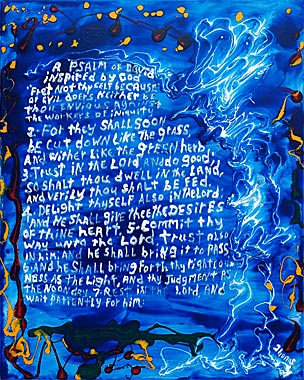 A PSALM OF David
inspired by God
"Fret not thyself because
of Evil doers, Neither be
thou envious against
the workers of iniquity
2. For they shall soon
be cut down like the grass,
and wither like the green herb.
3 Trust in the Lord and do good,
so shalt thou dwell in the Land,
and verily thou shalt be fed.
4. Delight thyself Also in the Lord;
and he shall give thee the DESIRES
of thine heart. 5. Commit thy
way unto the Lord, trust also
in him; and he shall bring it to pass
6. and he shall bring forth thy righteous
ness as the Light, and thy Judgment as
the Noonday 7. Rest in the Lord and
wait patiently for him: